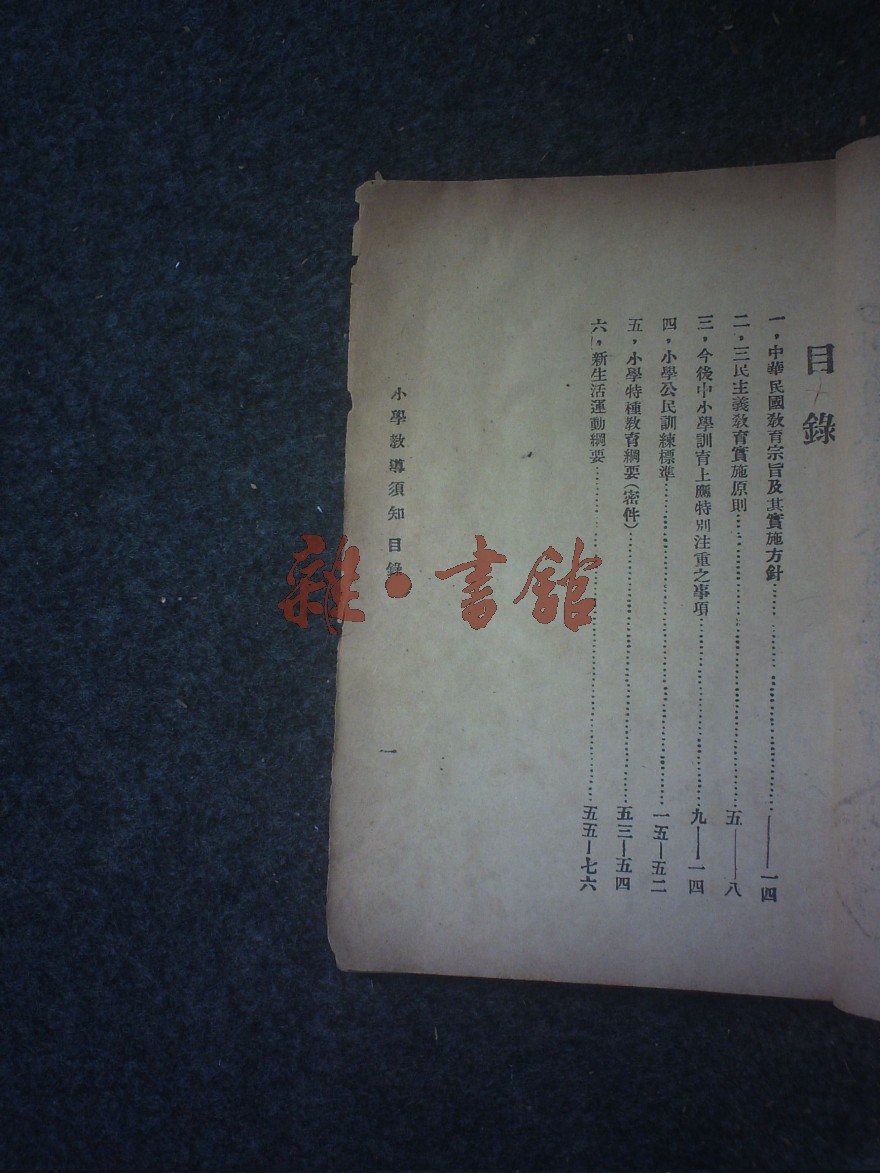 目錄
一，中華民國教育宗旨及其實施方針…………………………一——四
二，三民主義教育實施原則…………………………五——八
三，今後中小學訓育上應特別注重之事項…………………………九——一四
四，小學公民訓練標準…………………………一五—五二
五，小學特種教育綱要(密件)…………………………五三—五四
六，新生活運動綱要…………………………五五—七六
小學教導須知 目錄 一
雜·書館